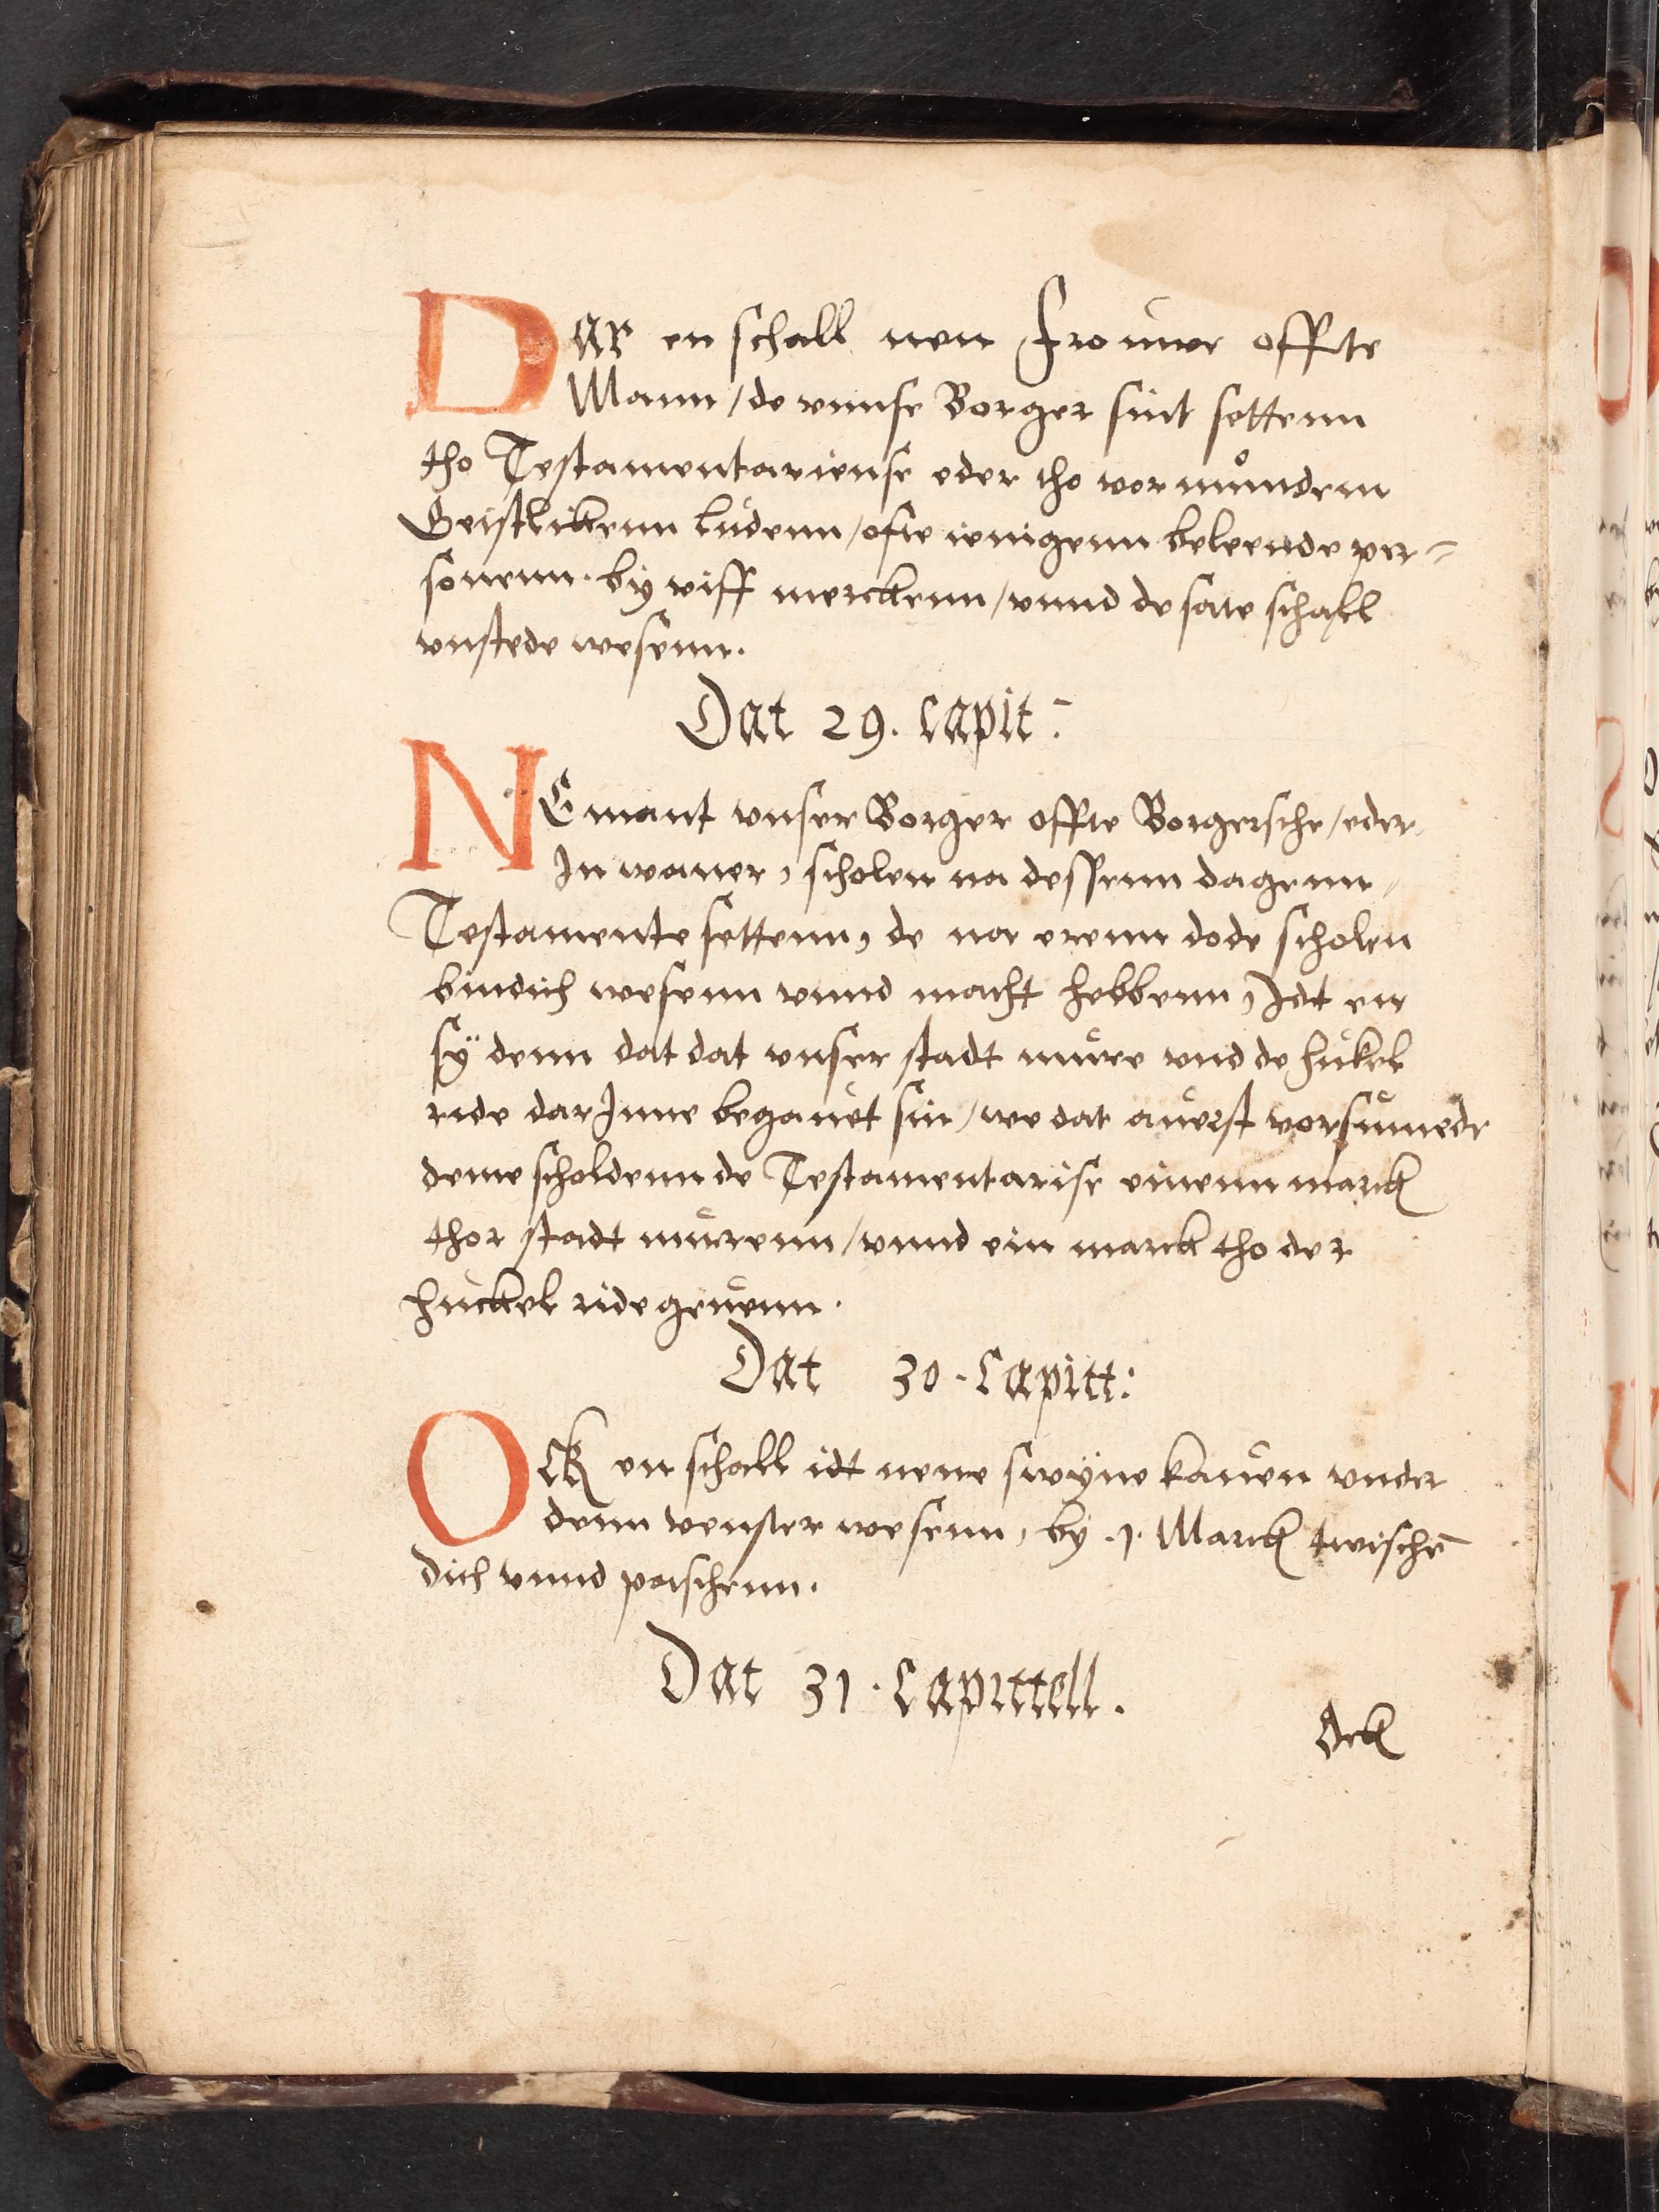 Dar en schall nen Frouwe offte
Mann / de vnnse Borger sint settenn
tho Testamentariense eder tho vormůndern
Geistlikenn ludenn / ofte ienigenn beleende per=
sonenn. by viff merckenn / vnnd de sate schall
vnstede wesenn.
Dat 29. Capit:
NEmant vnser Borger offte Borgersche / eder
Inwaner, scholen na dessenn dagenn
Testamente settenn, de na erenn dode scholen
bindich wesenn vnnd macht hebbenn, Idt en
sÿ denn dat dat vnser stadt mure vnd de hukel
ride darInne begauet sin / we dat auerst vorsumede
deme scholdenn de Testamentarise einenn marck
thor stadt murenn / vnnd ein marck tho der
huckel ride geuenn.
Dat 30. Capitt:
Ock en schall idt nene swÿne kauen vnder
denn venster wesenn, by .1. Marck twischē
dich vnnd paschenn.
Dat 31. Capittell.
Ock